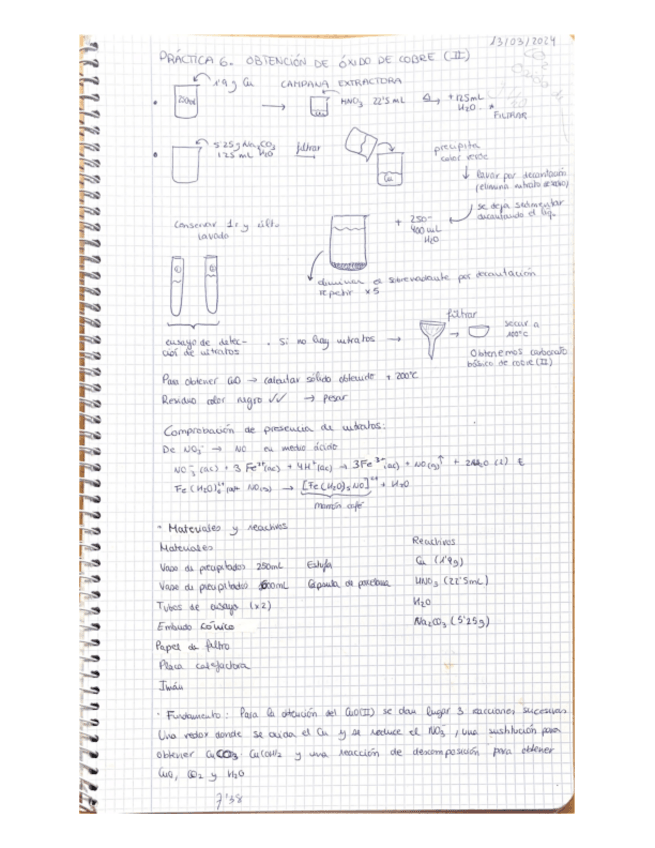 13/03/2024
PRÁCTICA 6. OBTENCIÓN DE ÓXIDO DE COBRE (II)
1'9 g Cu CAMPANA EXTRACTORA
250mL
HNO3 22'5 mL + 125mL H2O
Cu
FILTRAR
5'25 g Na2CO3
125 mL H2O
filtrar
Cu
precipita
color verde
lavar por decantación
(elimina nitrato de sodio)
se deja sedimentar
decantando el liq.
+ 250-
400 mL
H2O
Conservar 1º y últ.
lavado
eliminar el sobrenadante por decantación
repetir x5
ensayo de detec-
ción de nitratos
. Si no hay nitratos →
filtrar
secar a
100°C
Obtenemos carbonato
básico de cobre (II)
Para obtener CuO → calcular sólido obtenido + 200°C
Residuo color negro ✓✓ → pesar
Comprobación de presencia de nitratos:
De NO3- → NO en medio ácido
NO3- (ac) + 3 Fe2+(ac) + 4H+ (ac) → 3Fe 3+ (ac) + NO(g)↑ + 2H2O (l)
NO(g) → [Fe(H2O)5NO]2+ + H2O
marrón café
· Materiales y reactivos
Materiales Reactivos
Vaso de precipitados 250mL Estufa Cu (1'9g)
Vaso de precipitados 600mL Cápsula de porcelana HNO3 (22'5mL)
Tubos de ensayo (x2) H2O
Embudo cónico Na2CO3 (5'25g)
Papel de filtro
Placa calefactora
Imán
· Fundamento: Para la obtención del CuO(II) se dan lugar 3 reacciones sucesivas
Una redox donde se oxida el Cu y se reduce el NO3, una sustitución para
obtener CuCO3 Cu(OH)2 y una reacción de descomposición para obtener
CuO, CO2 y H2O
7'38